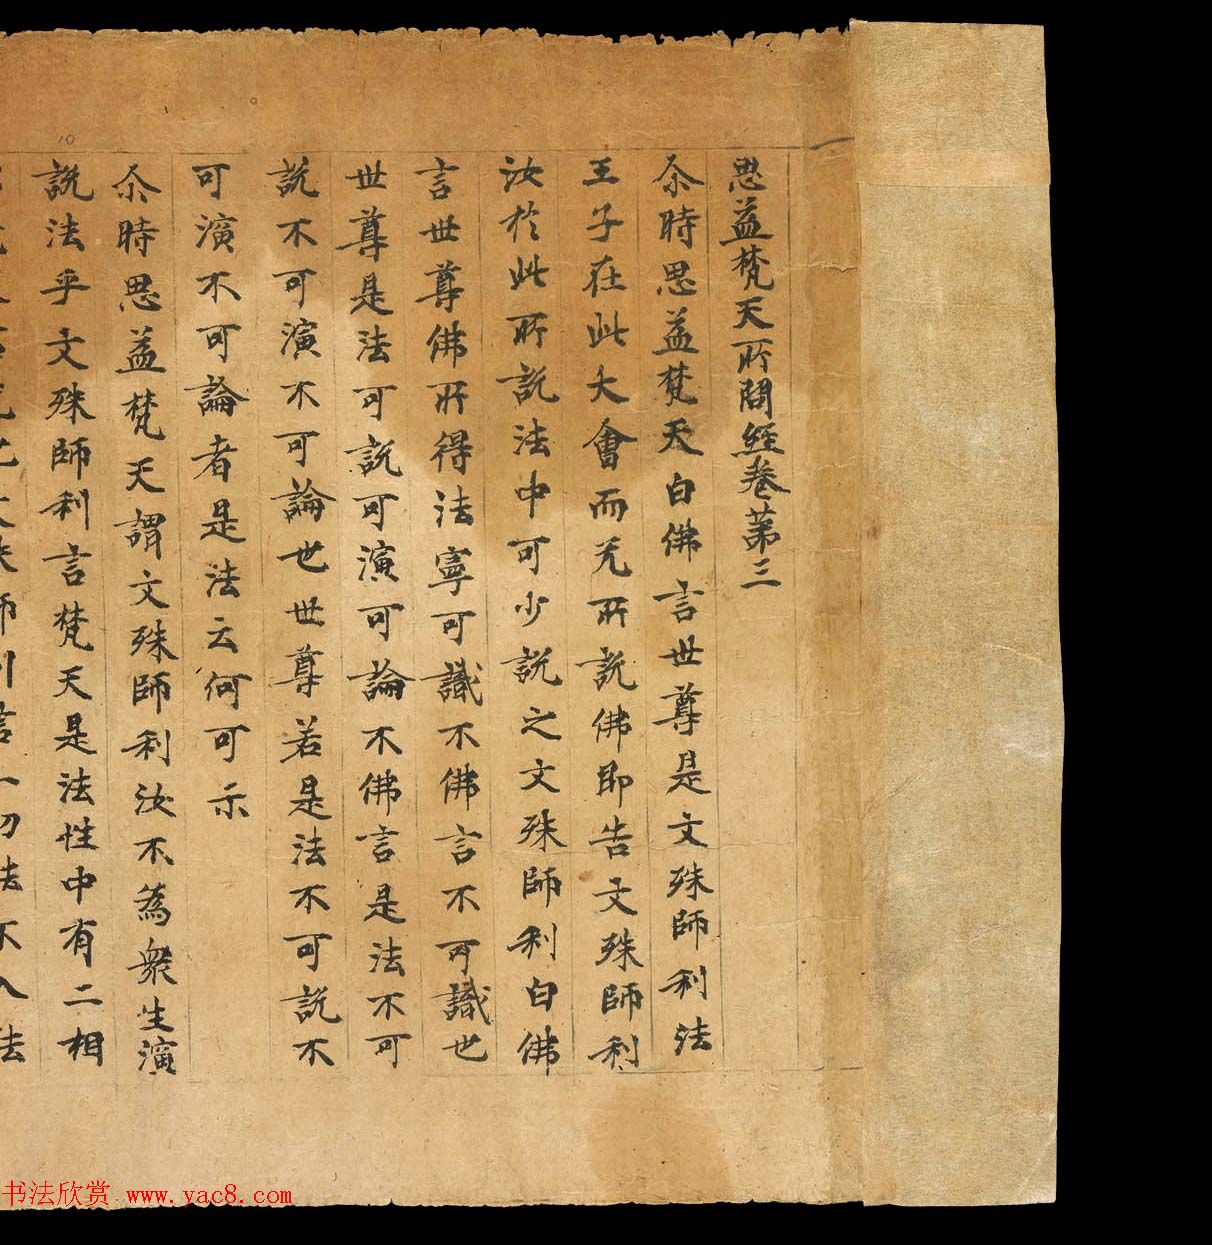 思益梵天所問經卷第三
尒時思益梵天白佛言世尊是文殊師利法
王子在此大會而无所說佛即告文殊師利
汝於此所說法中可少說之文殊師利白佛
言世尊佛所得法寧可識不佛言不可識也
世尊是法可說可演可論不佛言是法不可
說不可演不可論也世尊若是法不可說不
可演不可論者是法云何可示
尒時思益梵天謂文殊師利汝不為衆生演
說法乎文殊師利言梵天是法性中有二相
文殊師利言一切法不入法
10
书法欣赏 www.yac8.com